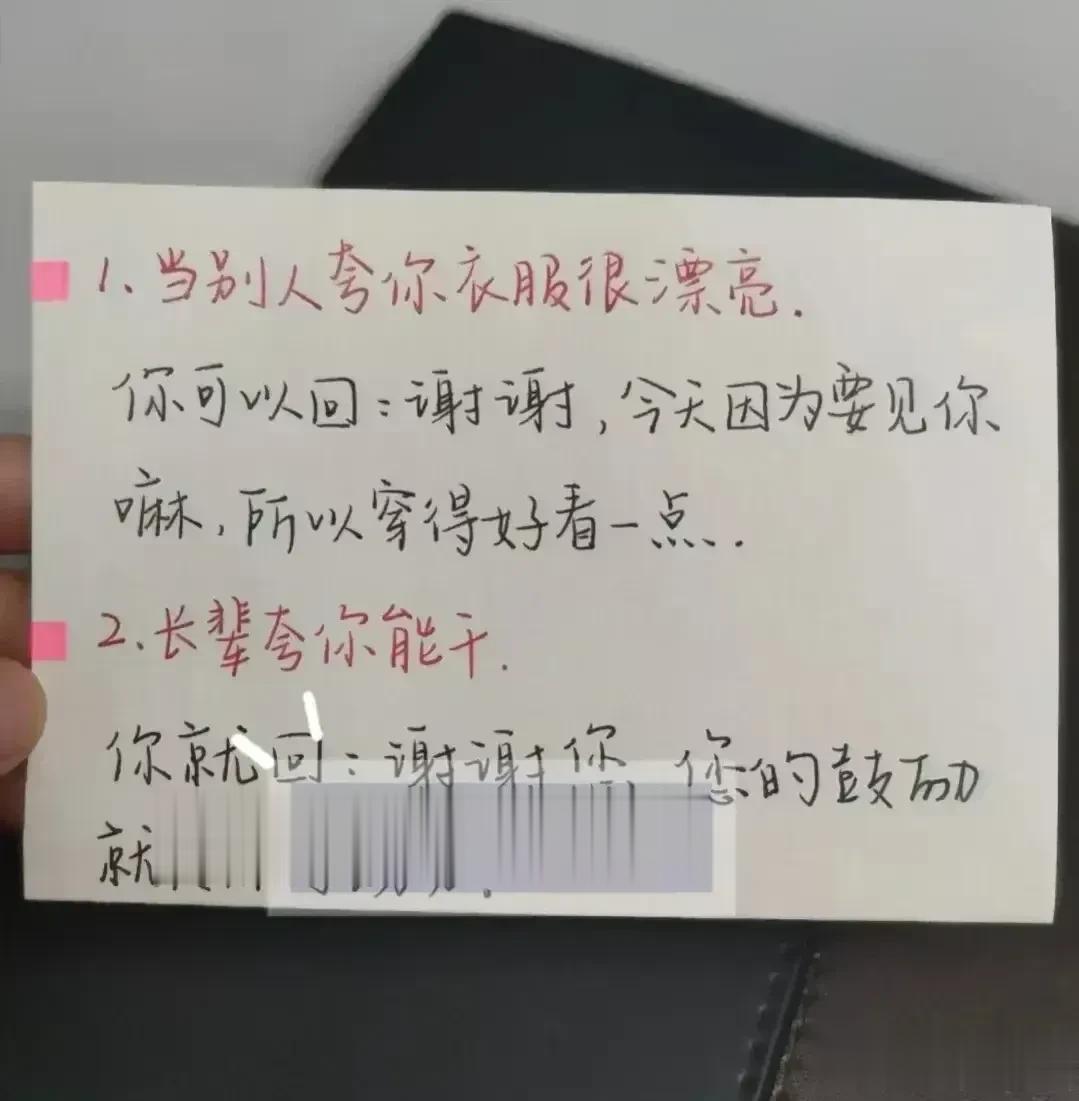 1. 当别人夸你衣服很漂亮.
你可以回:谢谢,今天因为要见你
嘛,所以穿得好看一点.
2.长辈夸你能干.
你就回:谢谢您 您的鼓励
就